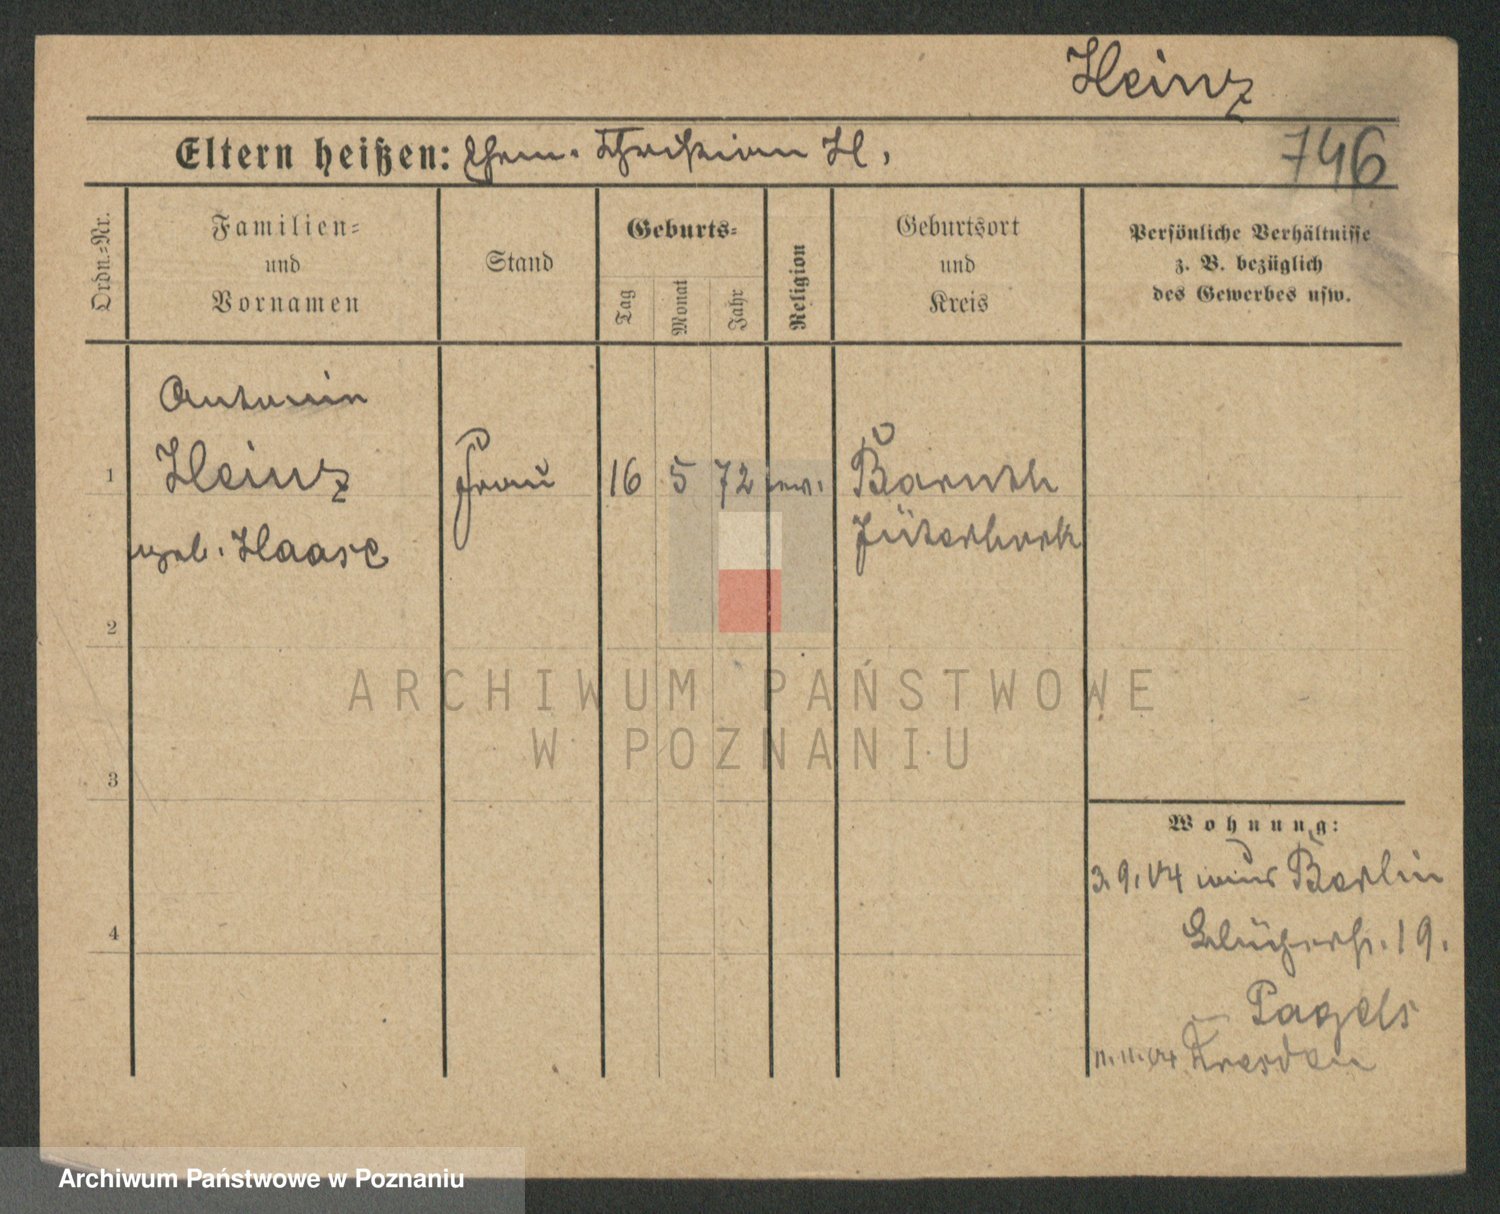 Heinz
Eltern heißen: Ehem. Christian H.
746
Ordn.-Nr.
Familien-
und
Vornamen
Stand
Geburts-
Tag
Monat
Jahr
Religion
Geburtsort
und
Kreis
Persönliche Verhältnisse
z. B. bezüglich
des Gewerbes usw.
Antonin
1 Heinz Frau 16 5 72 ev. Baruth
geb. Haase Jüterbock
2
3
4
Wohnung:
3.9.04 aus Berlin
Blücherstr. 19.
Pagels
11.11.04 Dresden
ARCHIWUM PAŃSTWOWE
W POZNANIU
Archiwum Państwowe w Poznaniu